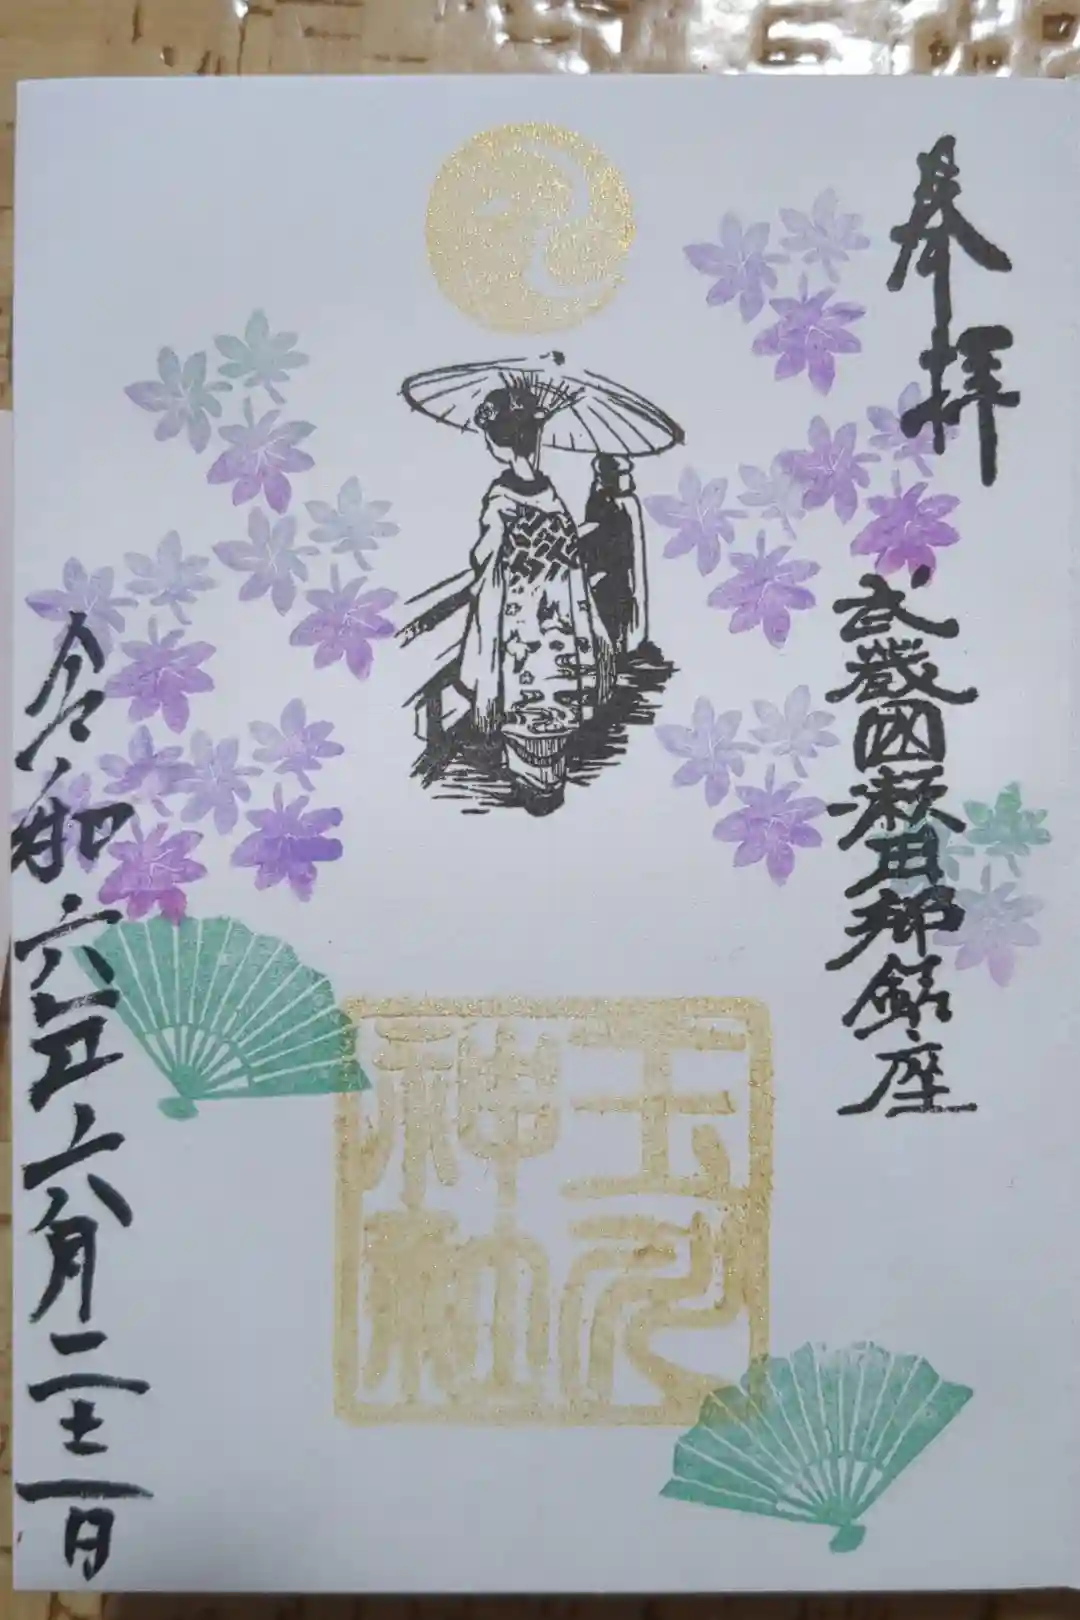 奉拝
武蔵國瀬田御鎮座
玉川
神社
令和六年六月二十二日